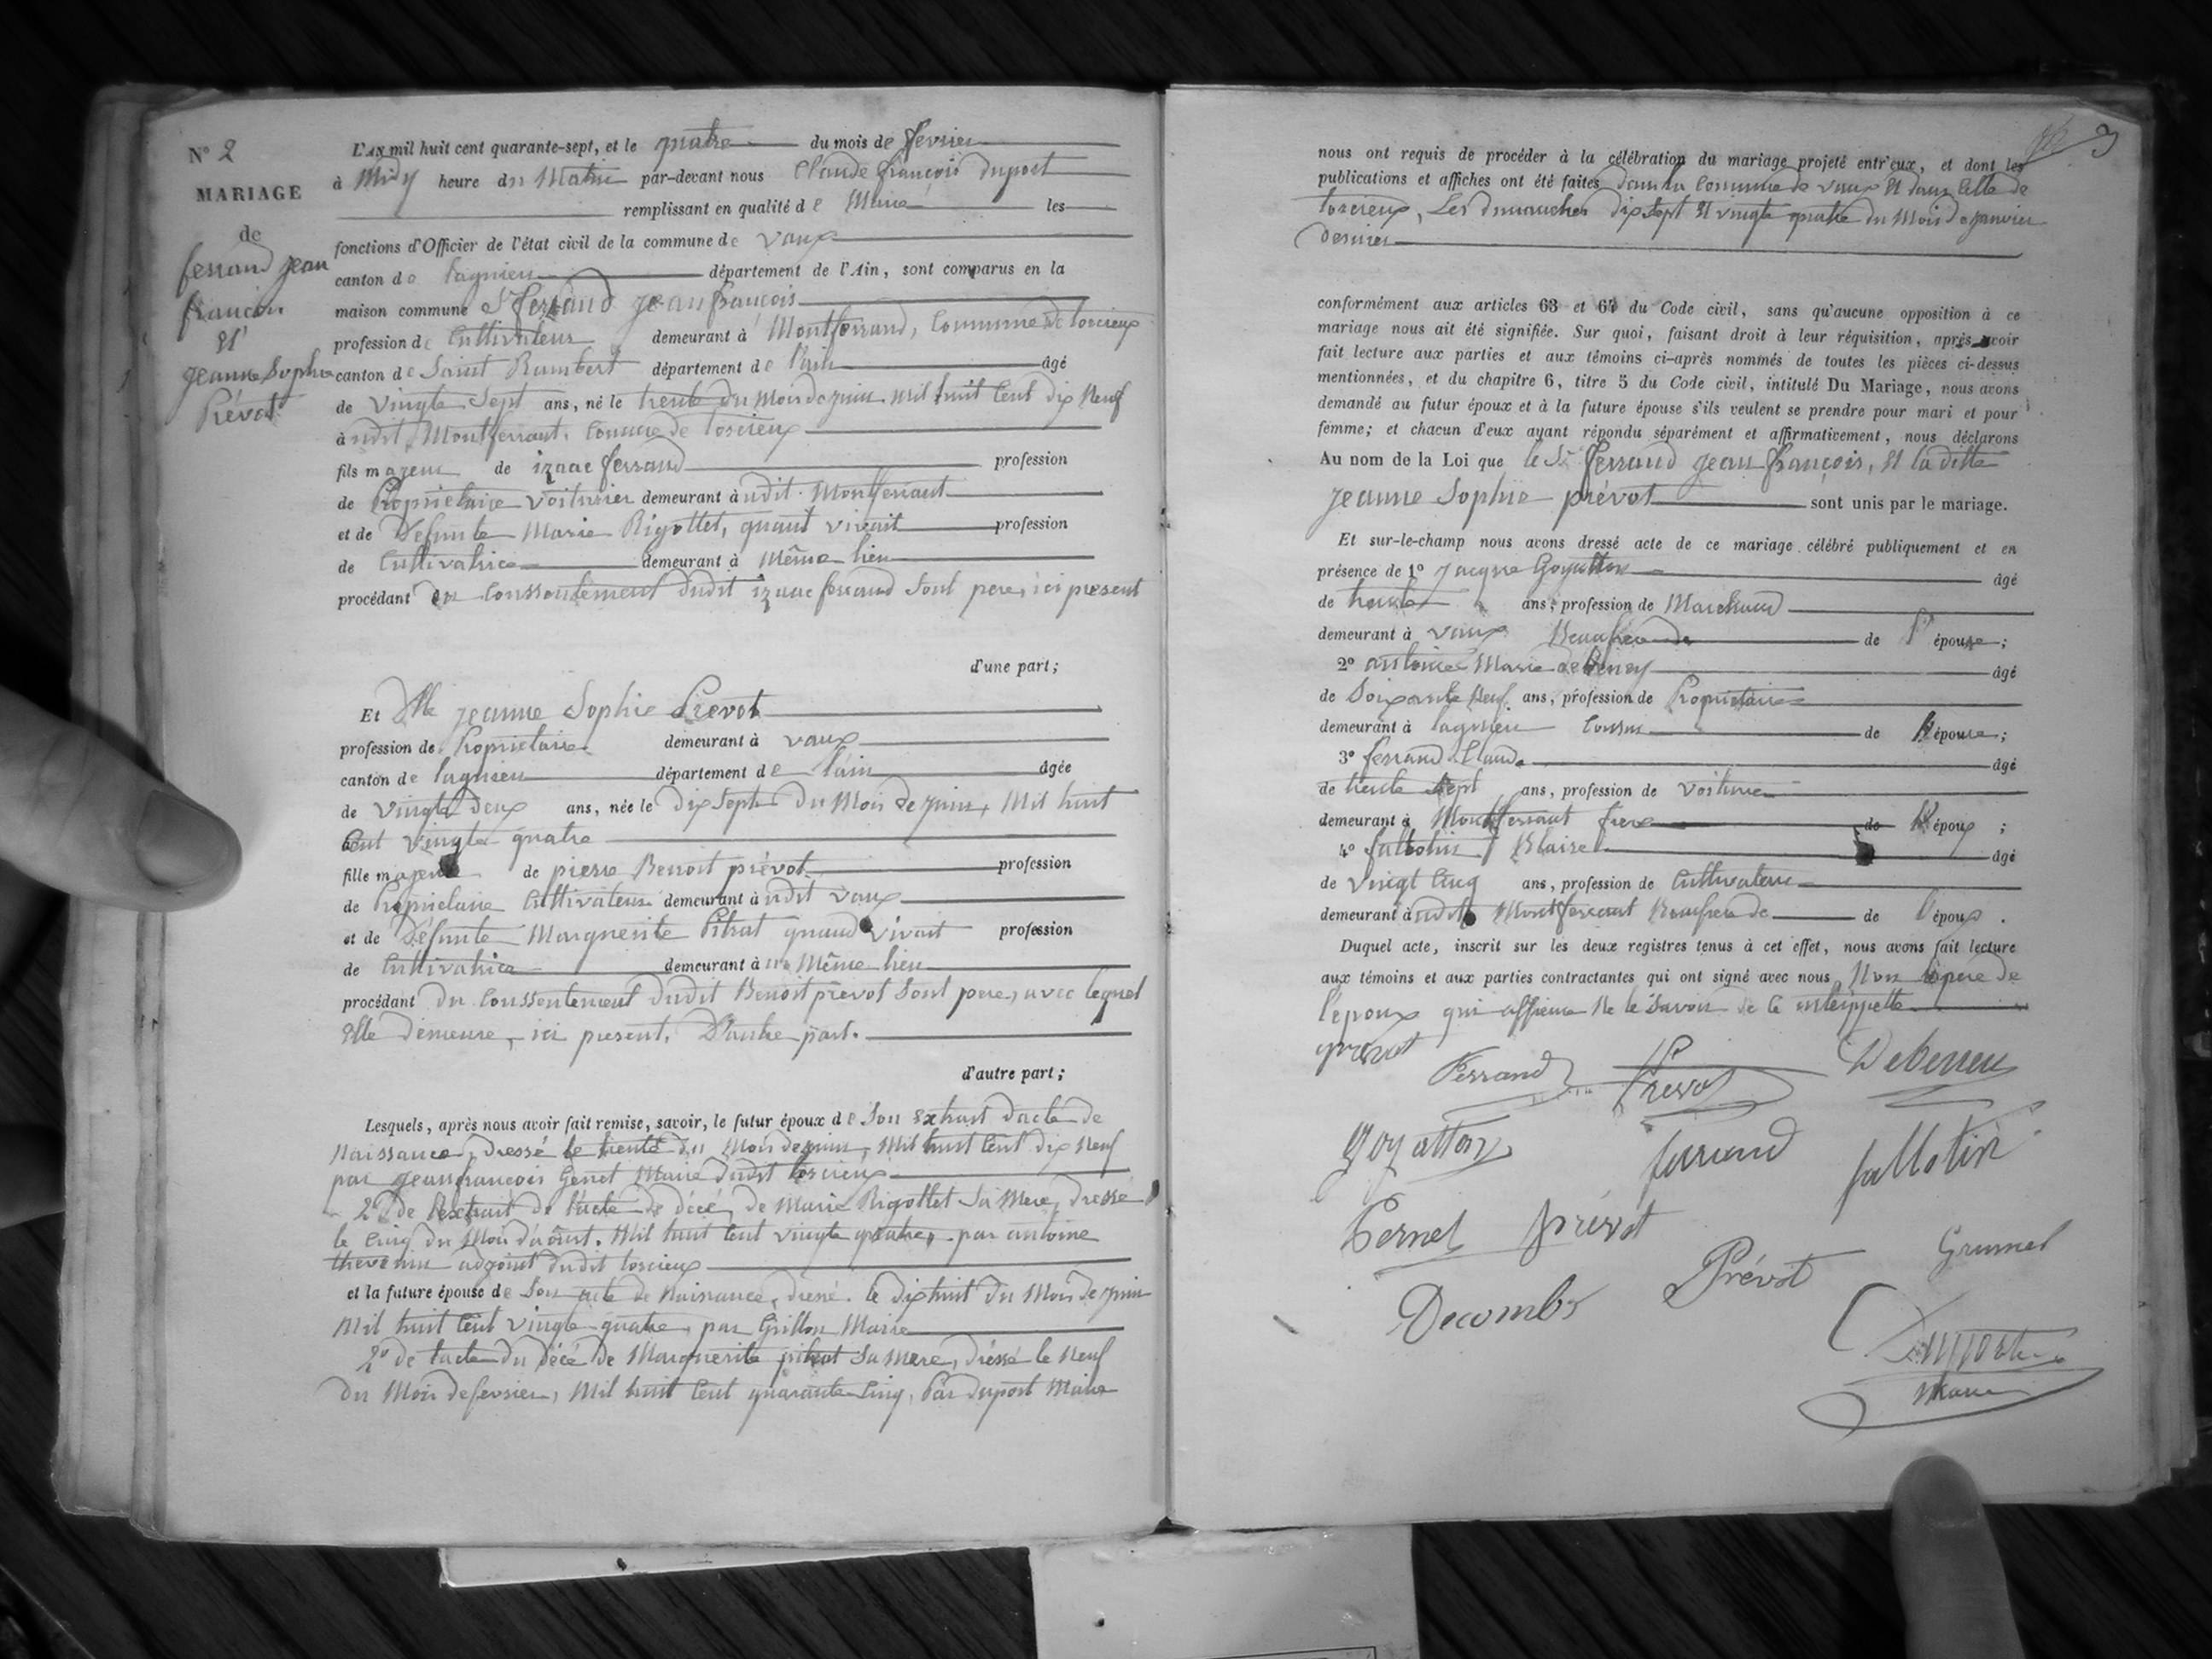 N° 2
MARIAGE
de
ferrand jean
francois
Et
jeanne Sophie
Prévot
L'AN mil huit cent quarante-sept, et le quatre du mois de fevrier
à Midy heure du Matin par-devant nous Claude françois dupost
remplissant en qualité de Maire les
fonctions d'Officier de l'état civil de la commune de vaux
canton de lagnieu département de l'Ain, sont comparus en la
maison commune Sr ferrand jean françois
profession de Cultivateur demeurant à Montferrand, Commune de torcieux
canton de Saint Rambert département de l'ain âgé
de vingte Sept ans, né le trente du Mois de juin mil huit Cent dix Neuf
à udit Montferrant, Commune de torcieux
fils majeur de izaac ferrand profession
de Proprietaire voiturier demeurant à udit Montferrant
et de Défunte Marie Rigollet, quant vivait profession
de Cultivatrice demeurant à Même lieu
procédant du Conssentement dudit izaac ferrand Sont pere, ici présent
d'une part;
Et Dlle jeanne Sophie Prevot
profession de Proprietaire demeurant à vaux
canton de lagnieu département de l'ain âgée
de vingte deux ans, née le dix Sept du Mois de juin, Mil huit
Cent vingte quatre
fille majeure de pierre Benoit prévot profession
de Proprietaire Cultivateur demeurant à udit vaux
et de Défunte Marguerite Pitrat quand vivait profession
de Cultivatrice demeurant à Même lieu
procédant du Conssentement dudit Benoit prévot Sont pere, avec lequel
Elle demeure, ici present. D'autre part.
d'autre part;
Lesquels, après nous avoir fait remise, savoir, le futur époux de Son Extrait d'acte de
Naissance, dressé le trente du Mois de juin, Mil huit Cent dix Neuf
par jean francois Genet Maire dudit torcieux
2° de l'Extrait de l'acte de décé, de Marie Rigollet Sa Mere, dressé
le Cinq du Mois d'août. Mil huit Cent vingte quatre, par antoine
thevenin adjoint dudit torcieux
et la future épouse de Son acte de Naissance, dressé le dix huit du Mois de juin
Mil huit Cent vingte quatre, par Grillon Maire
2° de l'acte du décé de Marguerite pitrat Sa mere, dressé le Neuf
du Mois de fevrier, Mil huit Cent quarante Cinq, Par dupost Maire
3
nous ont requis de procéder à la célébration du mariage projeté entr'eux, et dont les
publications et affiches ont été faites dans la Commune de vaux Et dans Celle de
torcieux, Les dimanches dix Sept Et vingte quatre du Mois de janvier
dernier
conformément aux articles 63 et 64 du Code civil, sans qu'aucune opposition à ce
mariage nous ait été signifiée. Sur quoi, faisant droit à leur réquisition, après avoir
fait lecture aux parties et aux témoins ci-après nommés de toutes les pièces ci-dessus
mentionnées, et du chapitre 6, titre 5 du Code civil, intitulé Du Mariage, nous avons
demandé au futur époux et à la future épouse s'ils veulent se prendre pour mari et pour
femme; et chacun d'eux ayant répondu séparément et affirmativement, nous déclarons
Au nom de la Loi que le Sr ferrand jean françois, Et la ditte
jeanne Sophie prévot sont unis par le mariage.
Et sur-le-champ nous avons dressé acte de ce mariage célébré publiquement et en
présence de 1° jacque Goyatton âgé
de trente ans, profession de Marchand
demeurant à vaux Beaufrere de l'épouse;
2° antoine Marie de âgé
de Soixante Neuf ans, profession de Proprietaire
demeurant à lagnieu Cousin de l'épouse;
3° ferrand Claude âgé
de trente Sept ans, profession de voiturier
demeurant à Montferrant frere de l'époux;
4° fallotin Blaise âgé
de vingt Cinq ans, profession de Cultivateur
demeurant à udit Montferrant Beaufrere de de l'époux.
Duquel acte, inscrit sur les deux registres tenus à cet effet, nous avons fait lecture
aux témoins et aux parties contractantes qui ont signé avec nous Non le pere de
l'époux qui affirme Ne le Savoir de ce
prevot
Ferrand Prevot Debeney
Goyatton ferrand fallotin
Pernet prévot
Grumel
Prévot
Decombe
Dupost
Maire